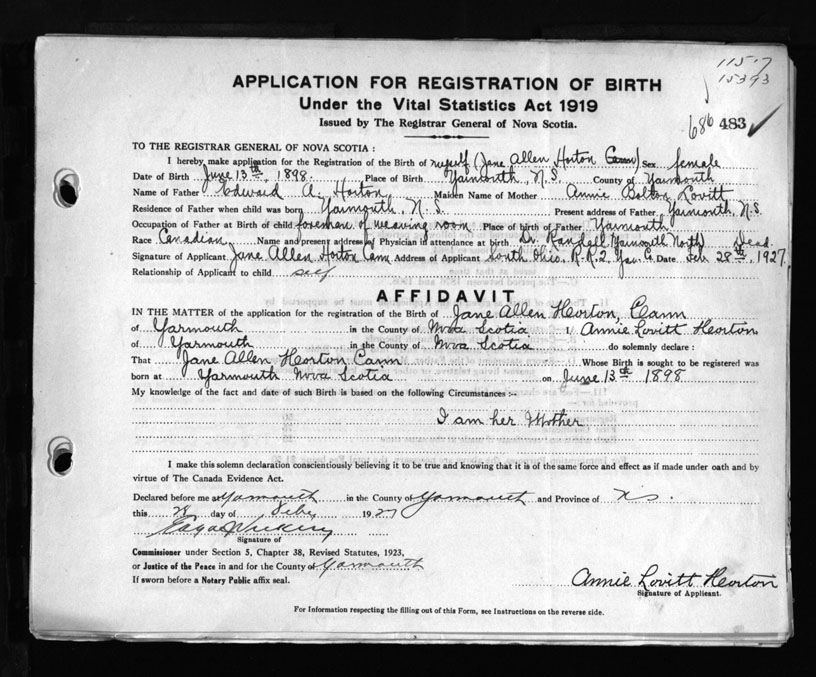 11517
15393
APPLICATION FOR REGISTRATION OF BIRTH
Under the Vital Statistics Act 1919
Issued by The Registrar General of Nova Scotia.
686 483
TO THE REGISTRAR GENERAL OF NOVA SCOTIA :
I hereby make application for the Registration of the Birth of myself (Jane Allen Horton Cann) Sex female
Date of Birth June 13th, 1898. Place of Birth Yarmouth, N.S. County of Yarmouth
Name of Father Edward A. Horton Maiden Name of Mother Annie Bolton Lovitt
Residence of Father when child was born Yarmouth, N.S. Present address of Father Yarmouth, N.S.
Occupation of Father at Birth of child foreman of weaving room Place of birth of Father Yarmouth
Race Canadian Name and present address of Physician in attendance at birth Dr. Randall Yarmouth North) Dead.
Signature of Applicant Jane Allen Horton Cann Address of Applicant South Ohio, R.R.2, Yar. Co. Date Feb. 28th, 1927.
Relationship of Applicant to child self
AFFIDAVIT
IN THE MATTER of the application for the registration of the Birth of Jane Allen Horton, Cann
of Yarmouth in the County of Nova Scotia I, Annie Lovitt Horton
of Yarmouth in the County of Nova Scotia do solemnly declare :
That Jane Allen Horton Cann Whose Birth is sought to be registered was
born at Yarmouth Nova Scotia on June 13th 1898
My knowledge of the fact and date of such Birth is based on the following Circumstances :-
I am her Mother
I make this solemn declaration conscientiously believing it to be true and knowing that it is of the same force and effect as if made under oath and by
virtue of The Canada Evidence Act.
Declared before me at Yarmouth in the County of Yarmouth and Province of N.S.
this 28 day of Feby 1927
Signature of
Commissioner under Section 5, Chapter 38, Revised Statutes, 1923,
or Justice of the Peace in and for the County of Yarmouth
If sworn before a Notary Public affix seal.
Annie Lovitt Horton
Signature of Applicant.
For Information respecting the filling out of this Form, see Instructions on the reverse side.